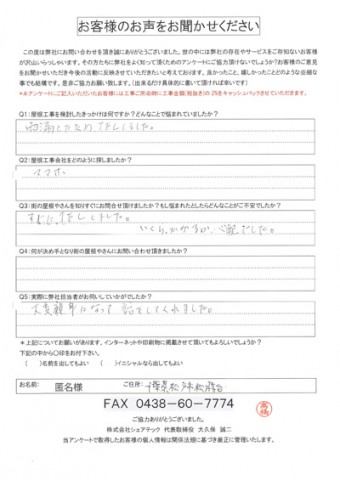 お客様のお声をお聞かせください
この度は弊社にお問い合わせを頂き誠にありがとうございました。世の中には弊社の存在やサービスをご存知ないお客様
が沢山いらっしゃいます。その方たちに弊社をよく知って頂くためのアンケートにご協力頂けないでしょうか?お客様のご意見
をお聞かせいただき今後の活動に反映させていただきたいと考えております。良かったこと、嬉しかったことどのような些細な
でも結構です。是非ご協力お願い致します。(出来るだけ具体的に書いて頂ければ幸いです)
*本アンケートにご記入いただいたお客様には工事ご依頼時に工事金額(税抜き)の2%をキャッシュバックさせていただきます。
Q1:屋根工事を検討したきっかけは何ですか?どんなことで悩まれていましたか?
Q2:屋根工事会社をどのように探しましたか?
スマホ
Q3:街の屋根やさんを知りすぐにお問合せ頂けましたか?もし悩まれたとしたらどんなことがご不安でしたか?
すぐに
いくらかかるか、心配でした。
Q4:何が決め手となり街の屋根やさんにお問い合わせ頂きましたか?
Q5:実際に弊社担当者がお伺いしていかがでしたか?
大変親身になって話をしてくれました。
*上記についてお願いがあります。インターネットや印刷物に掲載させて頂いてもよろしいでしょうか?
下記の中から〇印をお付け下さい。
( )名前を出してもよい ( )イニシャルなら出してもよい
お名前: 匿名様 ご住所: 千葉県松戸市松飛台
FAX 0438-60-7774
ご協力ありがとうございました。
株式会社シェアテック 代表取締役 大久保 誠二
当アンケートで取得したお客様の個人情報は関係法規に基づき厳正に管理いたします。